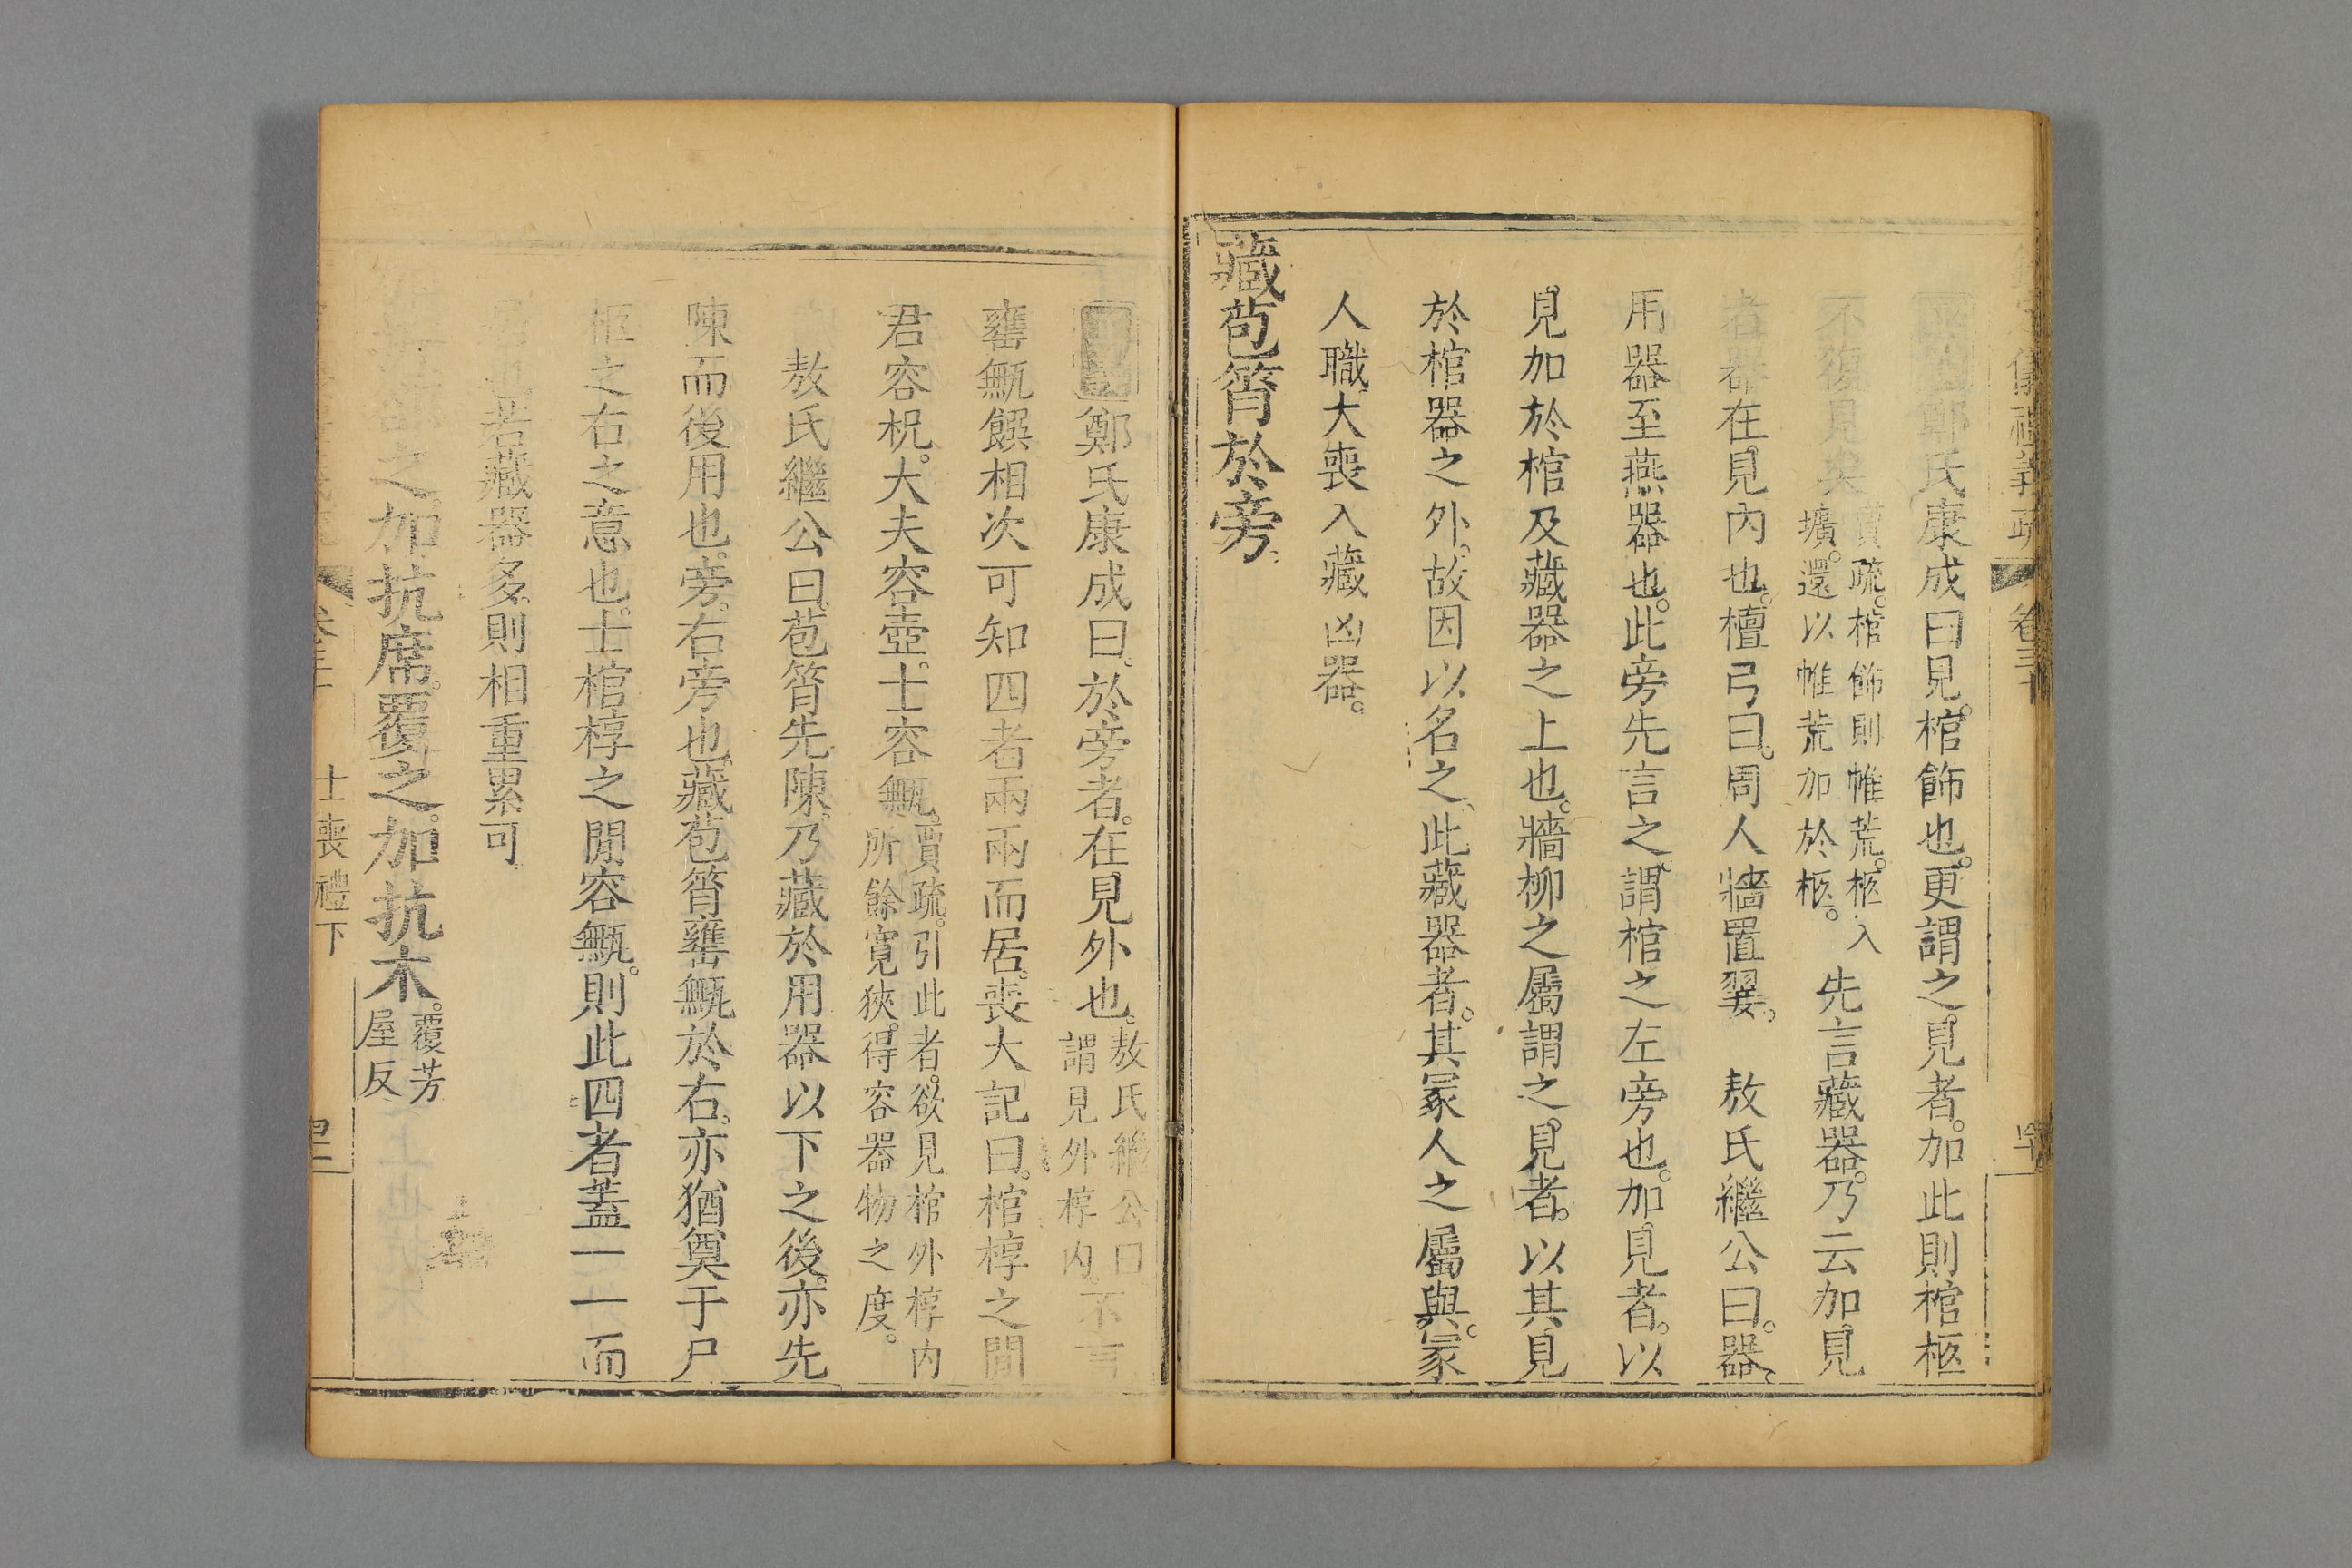 儀禮義疏 卷三十
鄭氏康成曰見。棺飾也。更謂之見者。加此則棺柩
不復見矣 賈疏。棺飾則帷荒。柩入壙。還以帷荒加於柩。 先言藏器。乃云加見
者器在見內也。檀弓曰。周人牆置翣。 敖氏繼公曰。器。
用器至燕器也。此旁先言之。謂棺之左旁也。加見者。以
見加於棺及藏器之上也。牆柳之屬謂之見者。以其見
於棺器之外。故因以名之。此藏器者。其冢人之屬與。冢
人職。大喪入藏凶器。
藏苞筲於旁。
鄭氏康成曰。於旁者。在見外也。 敖氏繼公曰。謂見外椁內。 不言
罋甒饌相次可知四者兩兩而居。喪大記曰。棺椁之間
君容柷。大夫容壺。士容甒。 賈疏。引此者。欲見棺外椁內所餘寬狹。得容器物之度。
敖氏繼公曰。苞筲先陳。乃藏於用器以下之後。亦先
陳而後用也。旁。右旁也。藏苞筲罋甒於右。亦猶奠于尸
柩之右之意也。士棺椁之閒容甒。則此四者蓋一一而
居也若藏器多。則相重累可
之。加抗席。覆之。加抗木。 覆芳屋反
卷三十 士喪禮下